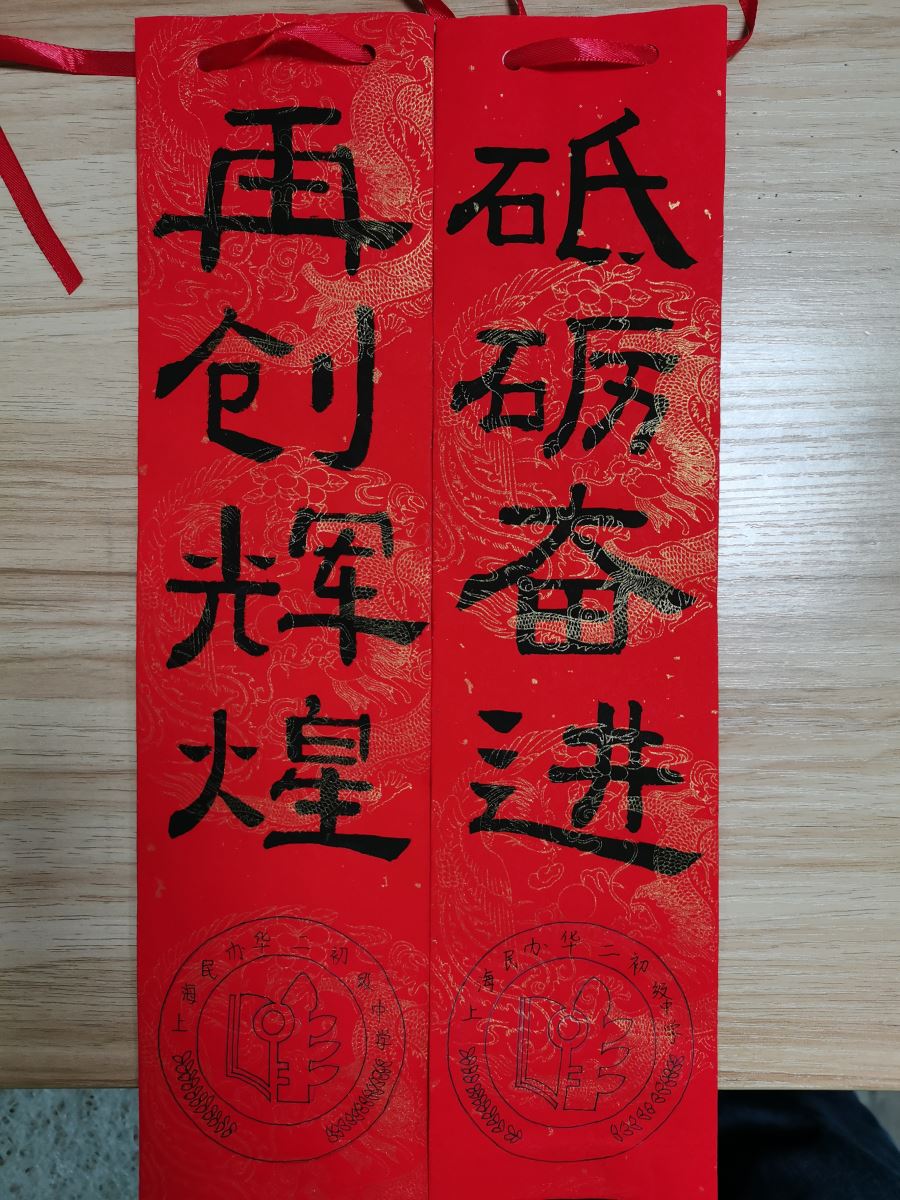 砥砺奋进
再创辉煌
上海民办华二初级中学
上海民办华二初级中学